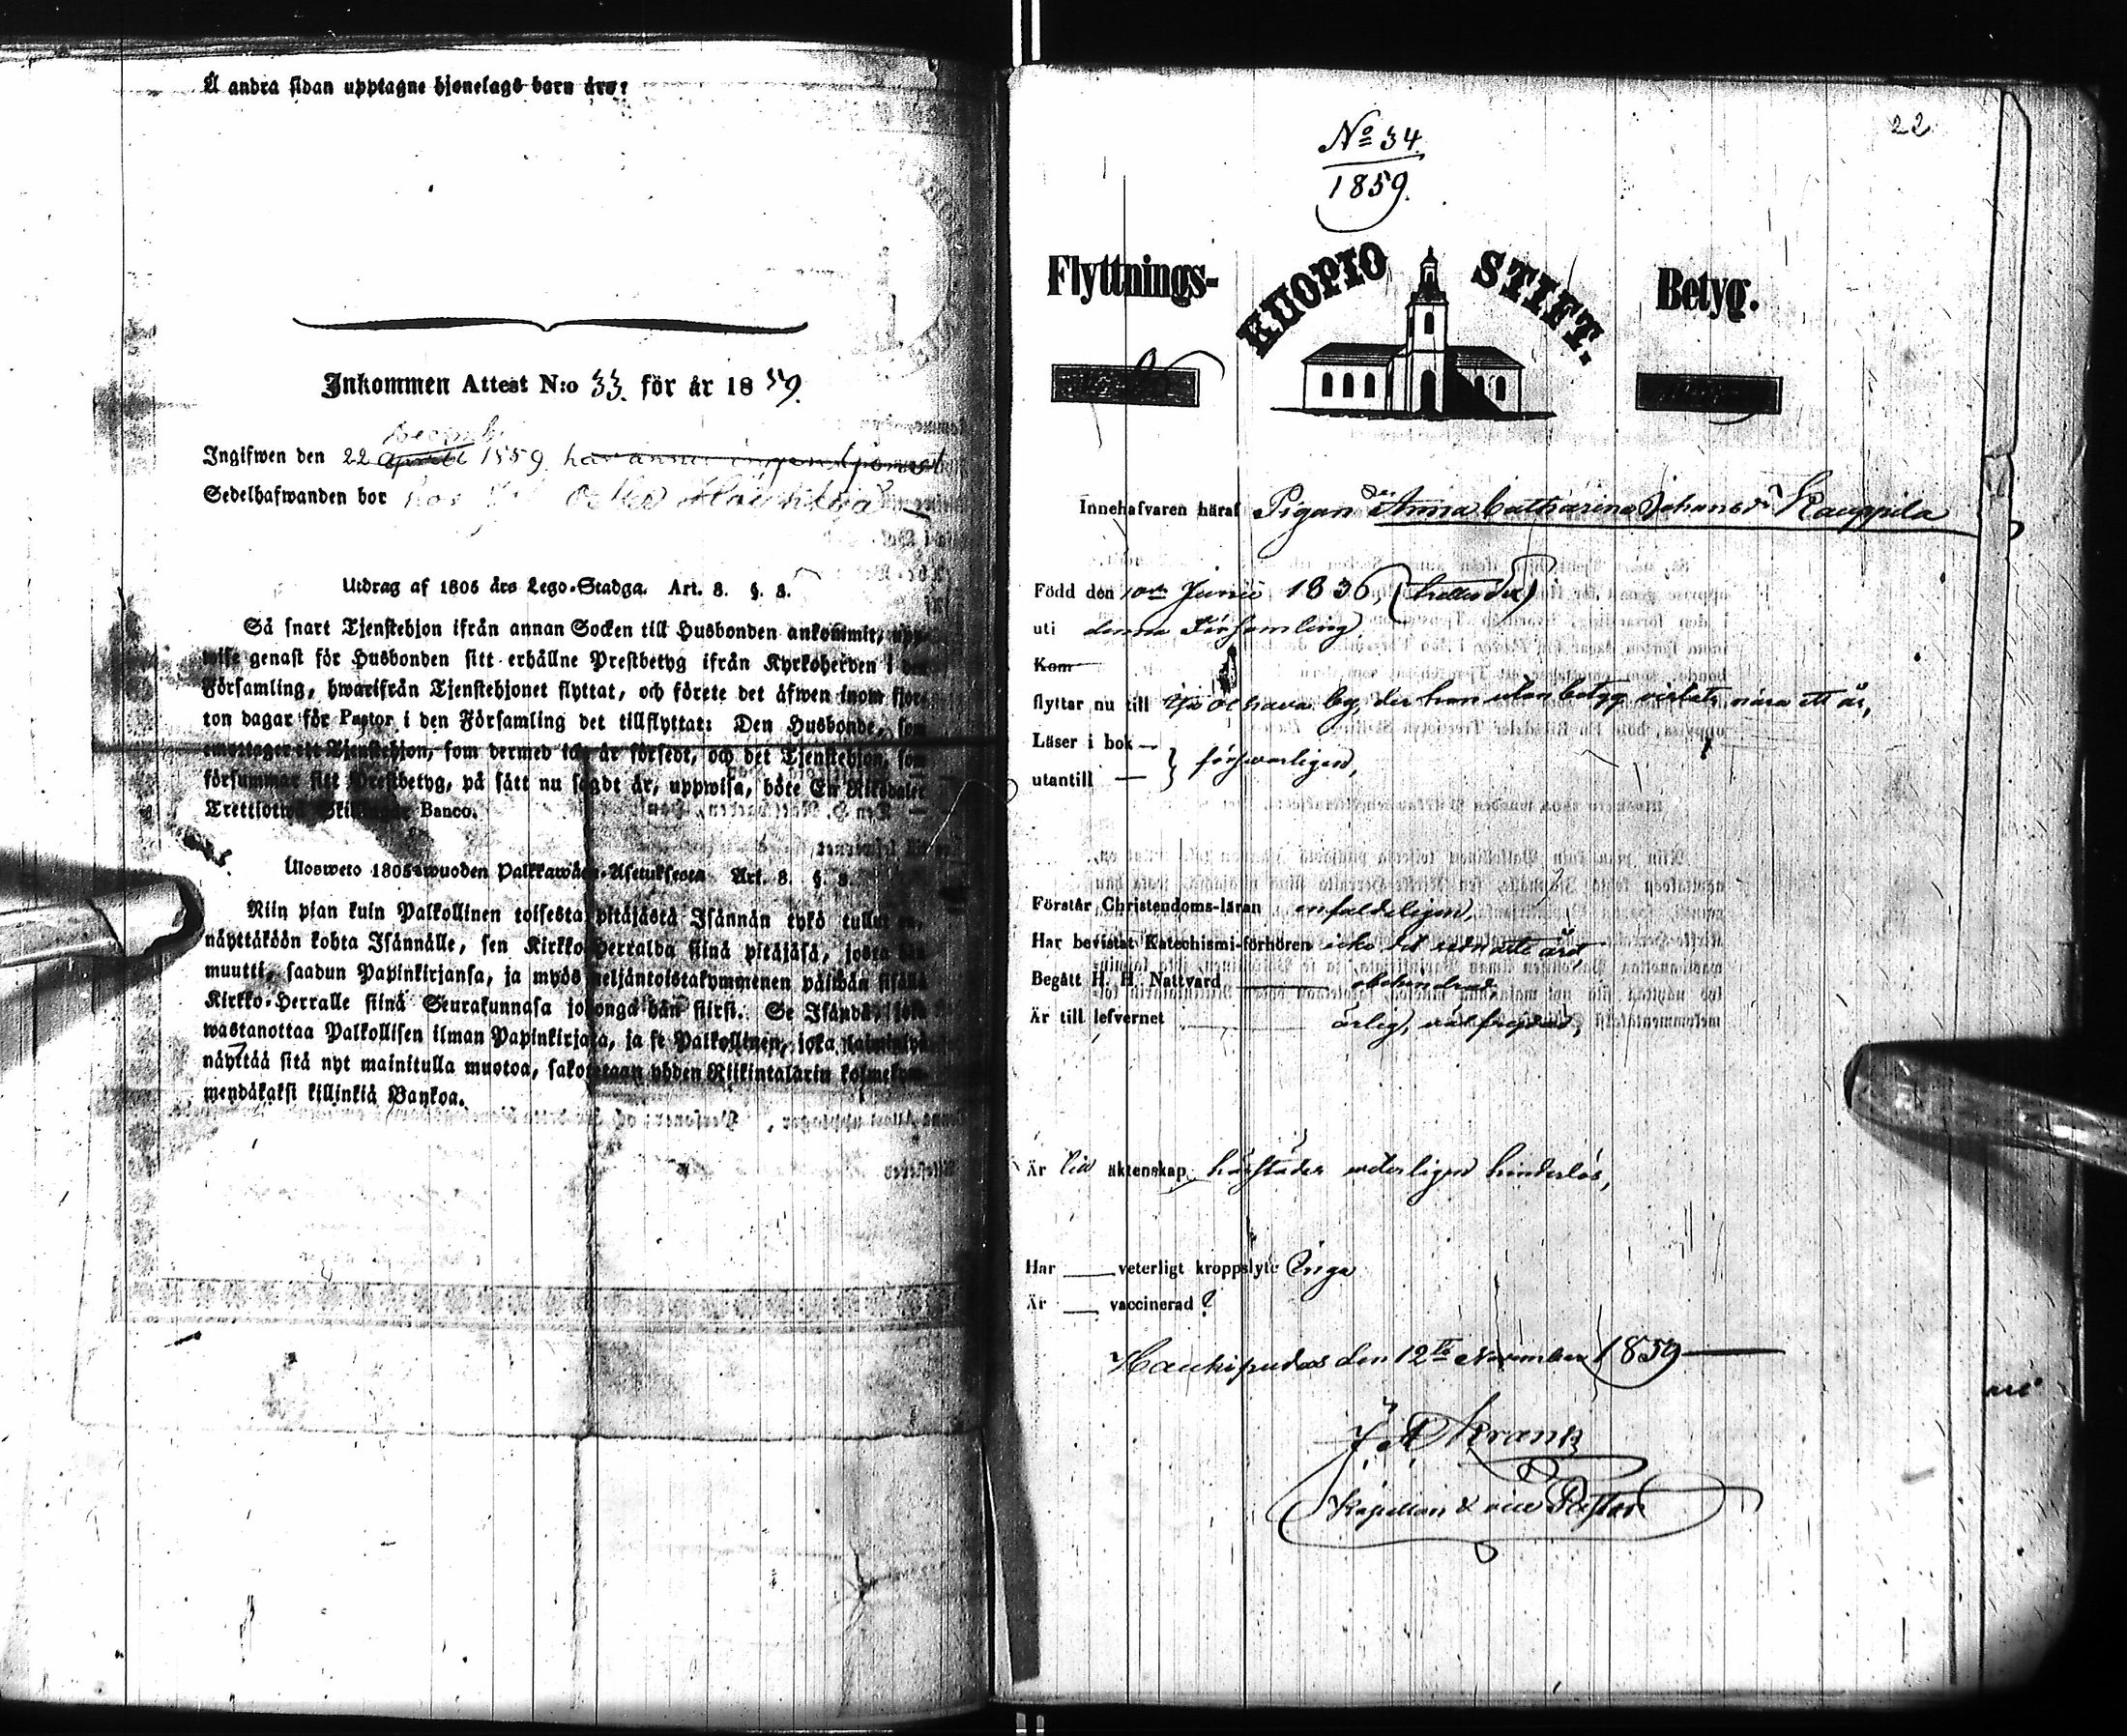 Å andra sidan upptagne hjonelags barn äro:
Inkommen Attest N:o 33. för år 1859.
Decemb.
Ingifwen den 22 Aprill 1859. har annu ingen tjenst
Sedelhafwanden bor hos
Utdrag af 1805 års Lego-Stadga. Art. 8. §. 8.
Så snart Tjenstehjon ifrån annan Socken till Husbonden ankommit,
genast för Husbonden sitt erhållne Prestbetyg ifrån Kyrkoherden i den
Församling, hwarifrån Tjenstehjonet flyttat, och förete det äfwen inom fjor-
ton dagar för Pastor i den Församling det tillflyttat: Den Husbonde, som
emottager ett Tjenstehjon, som dermed icke är försedt, och det Tjenstehjon, som
försummar sitt Prestbetyg, på sätt nu sagdt är, uppwisa, böte En Riksdaler
Trettiotwå Skillingar Banco.
Ulosweto 1805 wuoden Palkkawäen-Asetuksesta Art. 8. §. 8.
Niin pian kuin Palkollinen toisesta pitäjästä Isännän tykö tullut on,
näyttäköön kohta Isännälle, sen Kirkko-Herralda siinä pitäjäsä, josta hän
muutti, saadun Papinkirjansa, ja myös neljäntoistakymmenen päiwän sisällä
Kirkko-Herralle siinä Seurakunnasa johonga hän siirsi. Se Isändä, joka
wastanottaa Palkollisen ilman Papinkirjata, ja se Palkollinen, joka
näyttää sitä nyt mainitulla muotoa, sakotetaan yhden Riikintalarin kolmekym-
mendäkaksi killinkiä Bankoa.
22
No 34
1859.
Flyttnings- KUOPIO STIFT. Betyg.
Innehafvaren häraf Pigan Anna Catharina Johansdr Kauppila
Född den 10de Junii 1836, (trettiosex)
uti denna Församling.
Kom
flyttar nu till by, der hon utan betyg vistats nära ett år,
Läser i bok —
utantill — } försvarligen,
Förstår Christendoms-läran enfaldeligen,
Har bevistat Katechismi-förhören icke det sednaste året,
Begått H. H. Nattvard obehindrad
Är till lefvernet ärlig, väl frejdad,
Är till äktenskap härstädes veterligen hinderlös,
Har — veterligt kroppslyte Inga
Är — vaccinerad ?
Haukipudas den 12te November 1859 —
J A Krank
Kapellan & vice Pastor